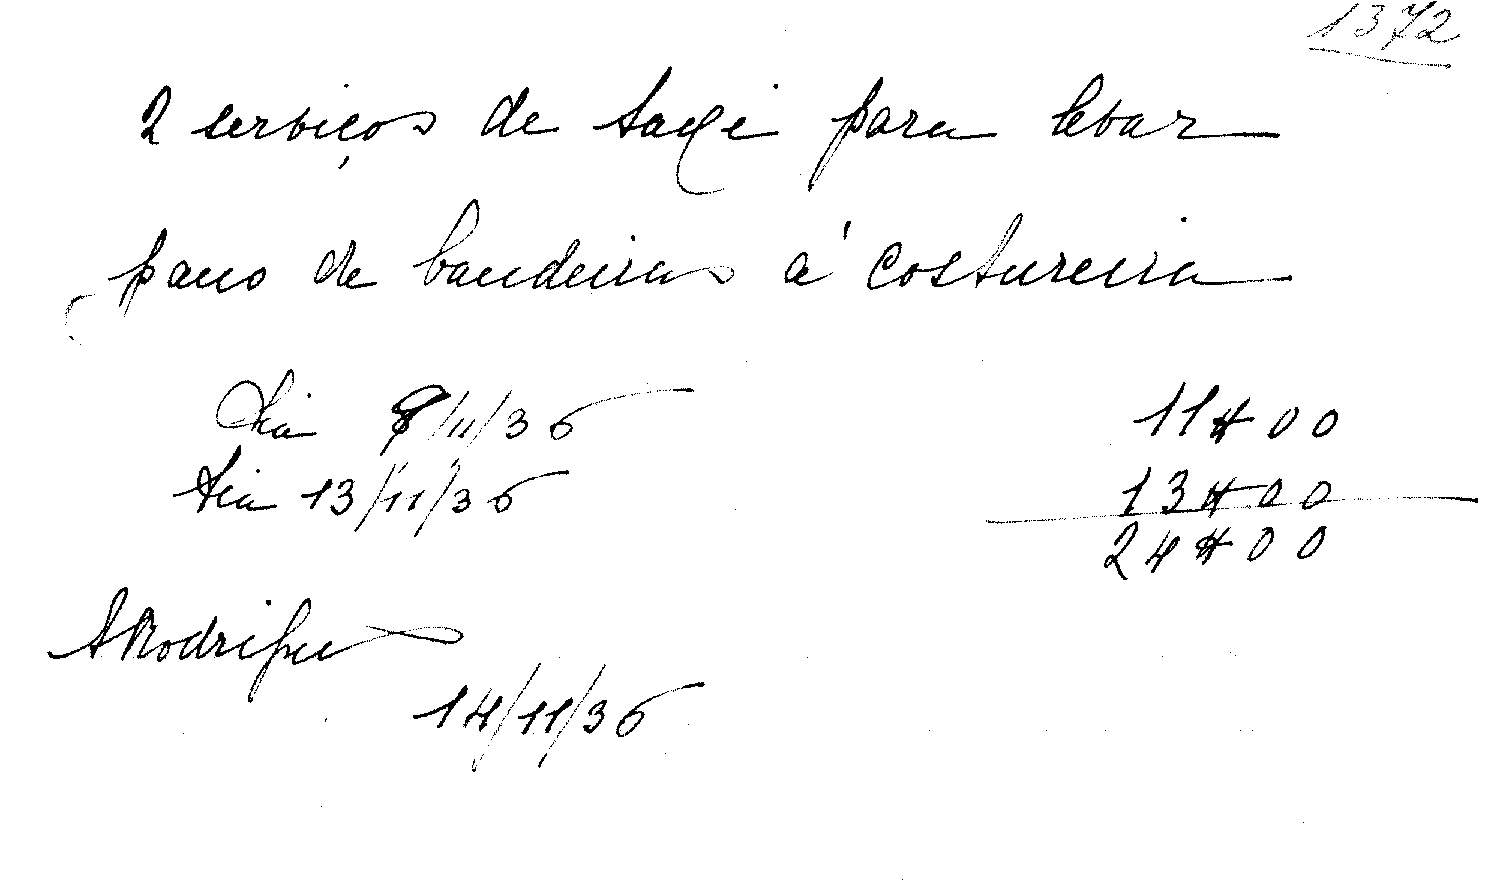 1372
2 serviços de taxi para levar
pano de bandeiras á costureira
Dia 9/11/36 11$00
Dia 13/11/36 13$00
24$00
ARodrigues
14/11/36